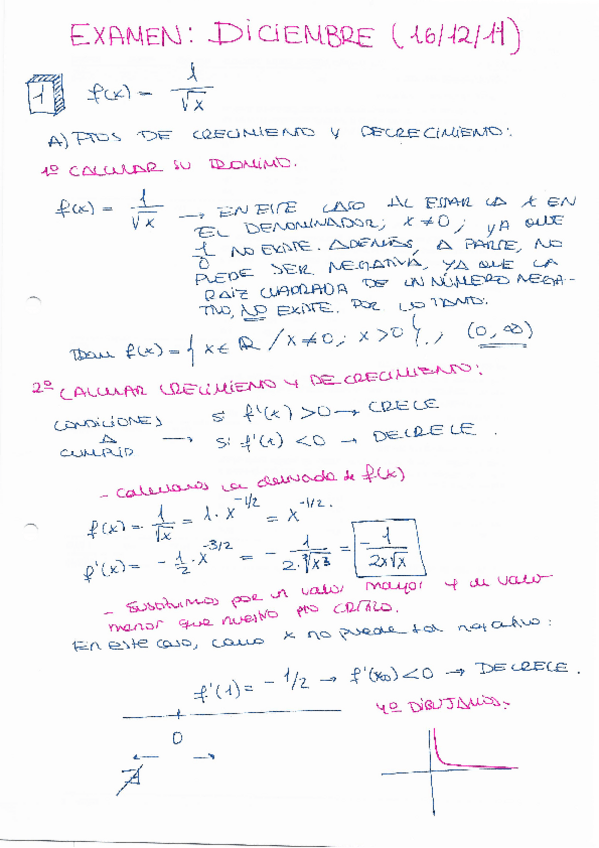 EXAMEN: DICIEMBRE (16/12/11)
1 f(x) = 1/√x
A) PTOS DE CRECIMIENTO Y DECRECIMIENTO:
1º CALCULAR SU DOMINIO.
f(x) = 1/√x → EN ESTE CASO AL ESTAR LA X EN
EL DENOMINADOR; x ≠ 0; YA QUE
1/0 NO EXISTE. ADEMÁS, A PARTE, NO
PUEDE SER NEGATIVA, YA QUE LA
RAÍZ CUADRADA DE UN NÚMERO NEGA-
TIVO, NO EXISTE. POR LO TANTO:
Dom f(x) = { x ∈ ℝ / x ≠ 0; x > 0 }; (0, ∞)
2º CALCULAR CRECIMIENTO Y DECRECIMIENTO:
CONDICIONES A CUMPLIR → si f'(x) > 0 → CRECE
si f'(x) < 0 → DECRECE.
- Calculamos la derivada de f(x)
f(x) = 1/√x = 1 · x^-1/2 = x^-1/2.
f'(x) = - 1/2 · x^-3/2 = - 1/2·²√x³ = - 1/2x√x
- Sustituimos por un valor mayor y de valor
menor que nuestro pto crítico.
En este caso, como x no puede ser negativo:
f'(1) = - 1/2 → f'(x) < 0 → DECRECE.
4º DIBUJAMOS.
0
∄